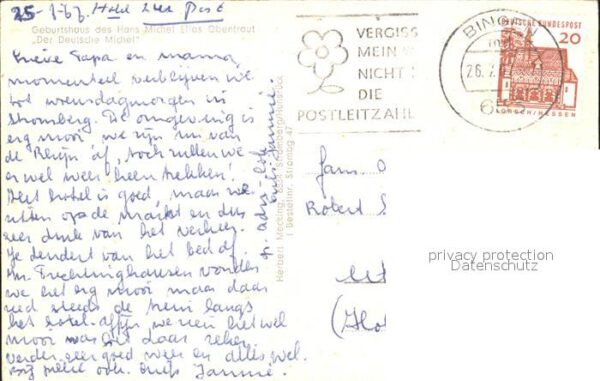 25-7-67. Hotel zur Post
Geburtshaus des Hans Michel Elias Obentraut
"Der Deutsche Michel"
Lieve Papa en mama,
momenteel verblijven we
tot woensdagmorgen in
Stromberg. De omgeving is
erg mooi we zijn nu van
de Rhijn af, toch zullen we
er wel weer heen trekken!
Het hotel is goed, maar we
zitten op de markt en dus
zeer druk van het verkeer.
Je dendert van het bed af.
In Frechlinghausen vonden
we het erg mooi maar daar
reed steeds de trein langs
het hotel. Afijn we zien het wel
mooi was het daar zeker
verder zeer goed weer en alles wel.
ook. Jannie.
Herbert
VERGISS
MEIN
NICHT
DIE
POSTLEITZAHL
BINGEN
26.7.
6
DEUTSCHE BUNDESPOST
20
LORSCH/HESSEN
Fam.
Robert S
(Hol
privacy protection
Datenschutz